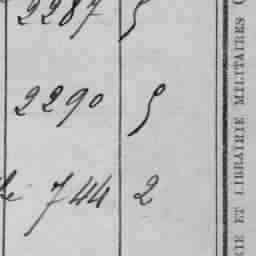 2287 5
2290 5
744 2
RIE ET LIBRAIRIE MILITAIRES